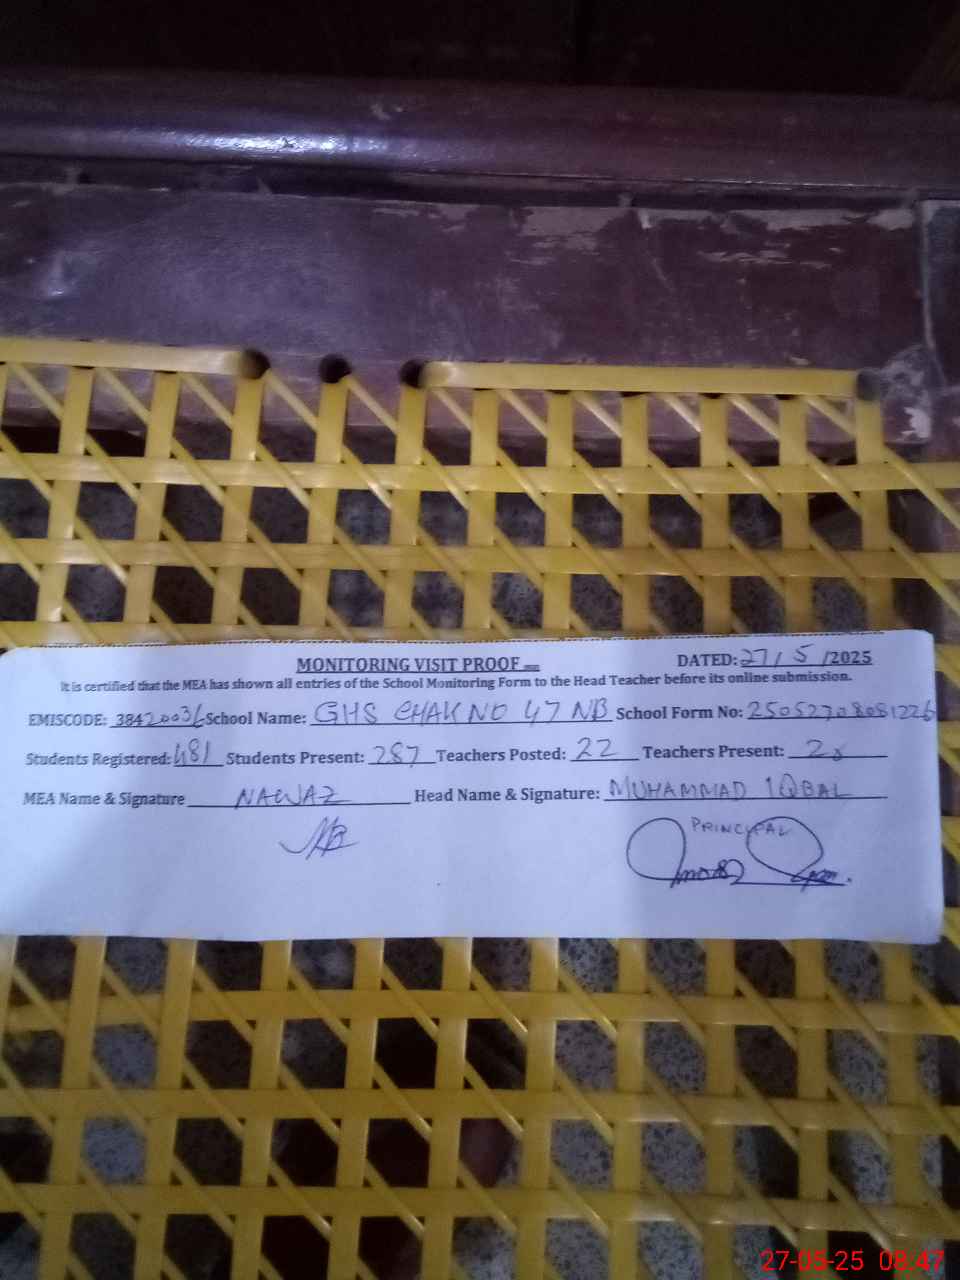 MONITORING VISIT PROOF
DATED: 27/5/2025
It is certified that the MEA has shown all entries of the School Monitoring Form to the Head Teacher before its online submission.
EMISCODE: 38420036 School Name: GHS CHAK NO 47 NB School Form No: 25052708081226
Students Registered: 481 Students Present: 287 Teachers Posted: 22 Teachers Present:
MEA Name & Signature NAWAZ Head Name & Signature: MUHAMMAD IQBAL
PRINCIPAL
27-05-25 08:47